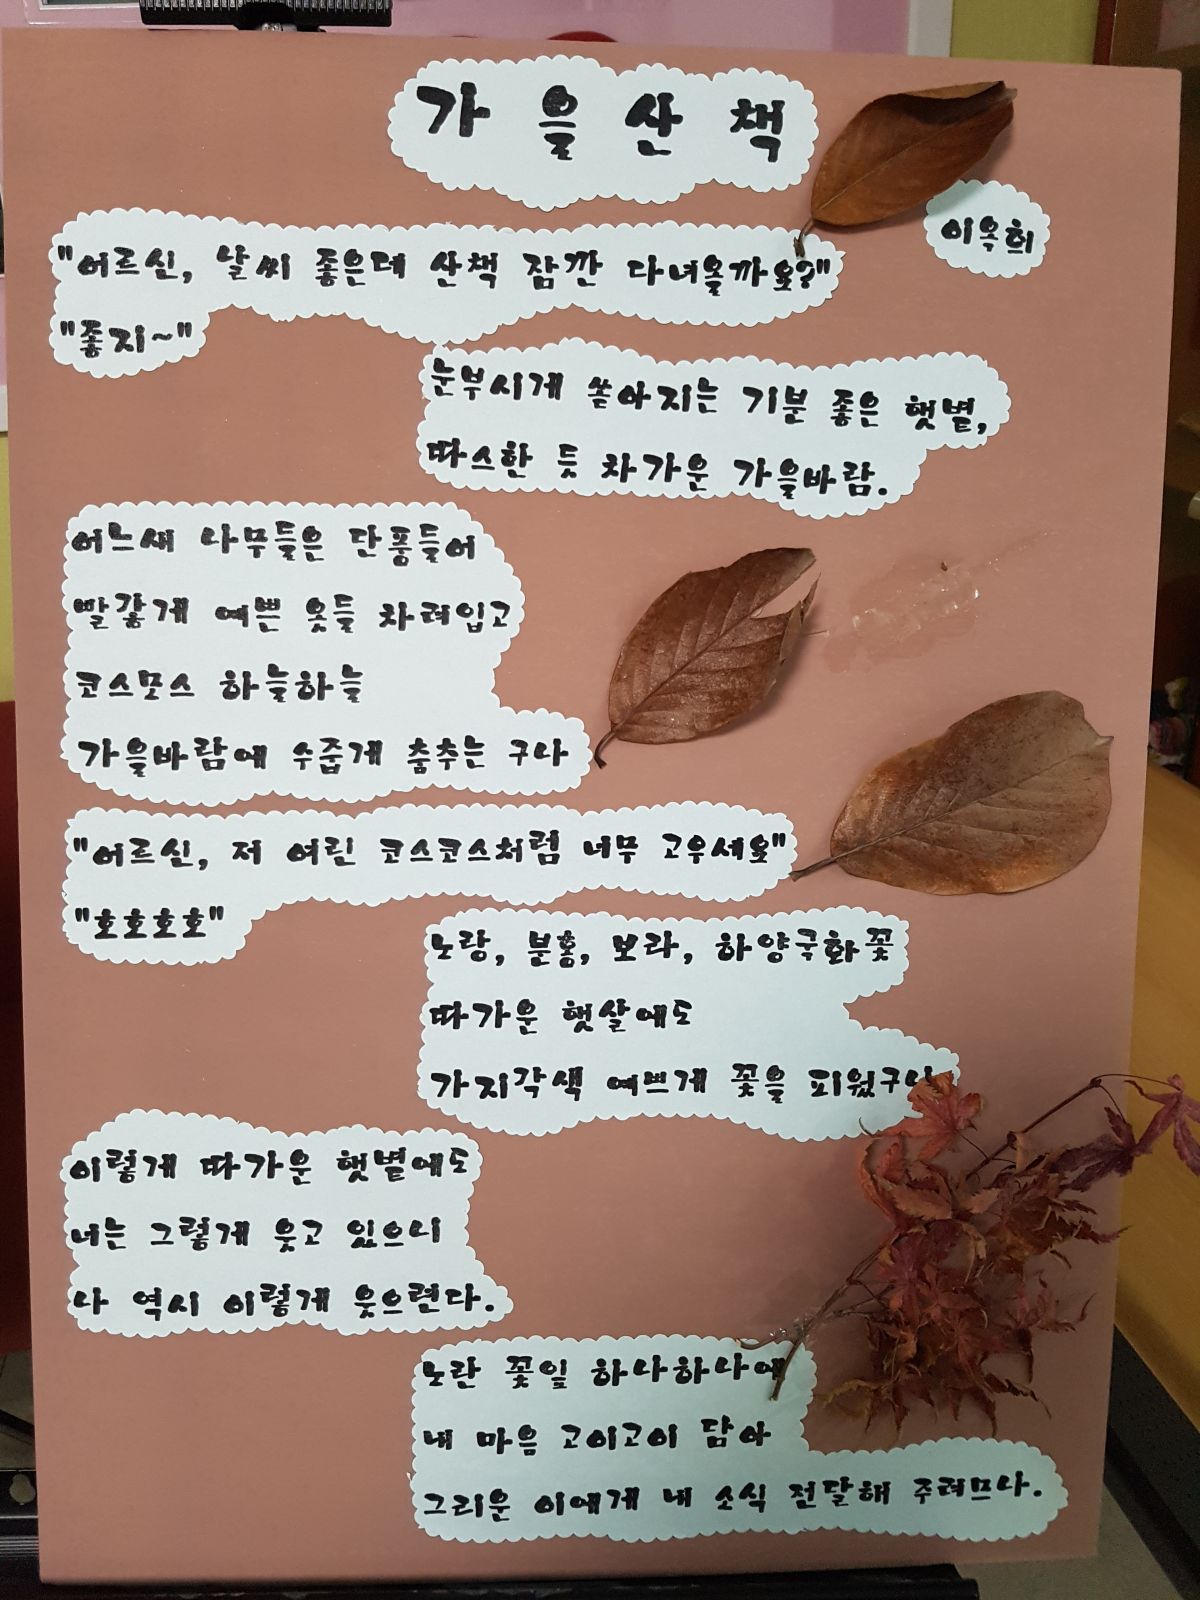 가을산책
이옥희
"어르신, 날씨 좋은데 산책 잠깐 다녀올까요?"
"좋지~"
눈부시게 쏟아지는 기분 좋은 햇볕,
따스한 듯 차가운 가을바람.
어느새 나무들은 단풍들어
빨갛게 예쁜 옷들 차려입고
코스모스 하늘하늘
가을바람에 수줍게 춤추는 구나
"어르신, 저 어린 코스코스처럼 너무 고우세요"
"호호호호"
노랑, 분홍, 보라, 하양국화꽃
따가운 햇살에도
가지각색 예쁘게 꽃을 피웠구나
이렇게 따가운 햇볕에도
너는 그렇게 웃고 있으니
나 역시 이렇게 웃으련다.
노란 꽃잎 하나하나에
내 마음 고이고이 담아
그리운 이에게 내 소식 전달해 주려므나.